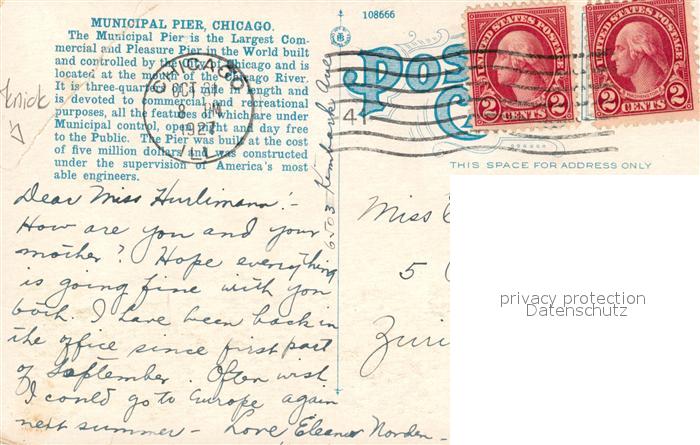 MUNICIPAL PIER, CHICAGO.
The Municipal Pier is the Largest Com-
mercial and Pleasure Pier in the World built
and controlled by the City of Chicago and is
located at the mouth of the Chicago River.
It is three-quarters in length and
is devoted to commercial and recreational
purposes, all the features of which are under
Municipal control, open night and day free
to the Public. The Pier was built at the cost
of five million dollars and was constructed
under the supervision of America's most
able engineers.
Knick
CHICAGO
OCT 21
8 PM
1927
ILL.
108666
POS
CA
4
UNITED STATES POSTAGE
2 CENTS 2
UNITED STATES POSTAGE
2 CENTS 2
THIS SPACE FOR ADDRESS ONLY
Dear Miss Hurlimann!-
How are you and your
mother? Hope everything
is going fine with you
both. I have been back in
the office since first part
of September. Often wish
I could go to Europe again
next summer - Love, Eleanor Norden-
6503 Kimbark Ave
Miss
5
Zuri
privacy protection
Datenschutz